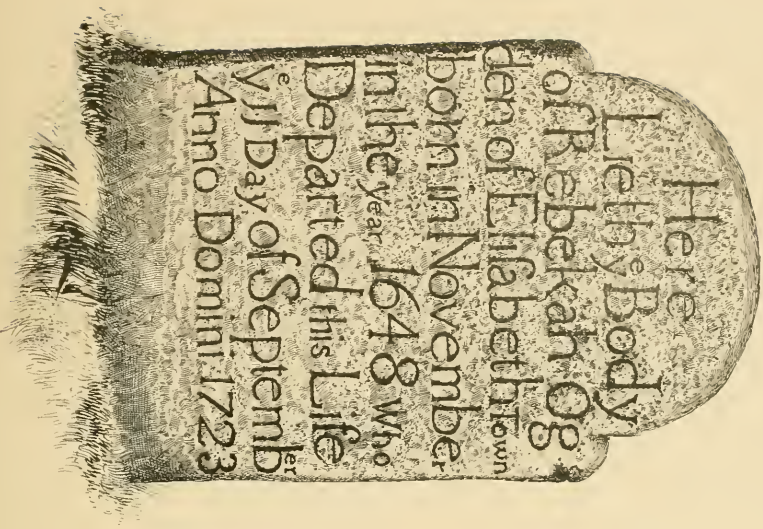 Here
Lieth yᵉ Body
of Rebekah Og
den of Elisabeth Town
born in November
in the year 1648 Who
Departed this Life
yᵉ 11 Day of September
Anno Domini 1723